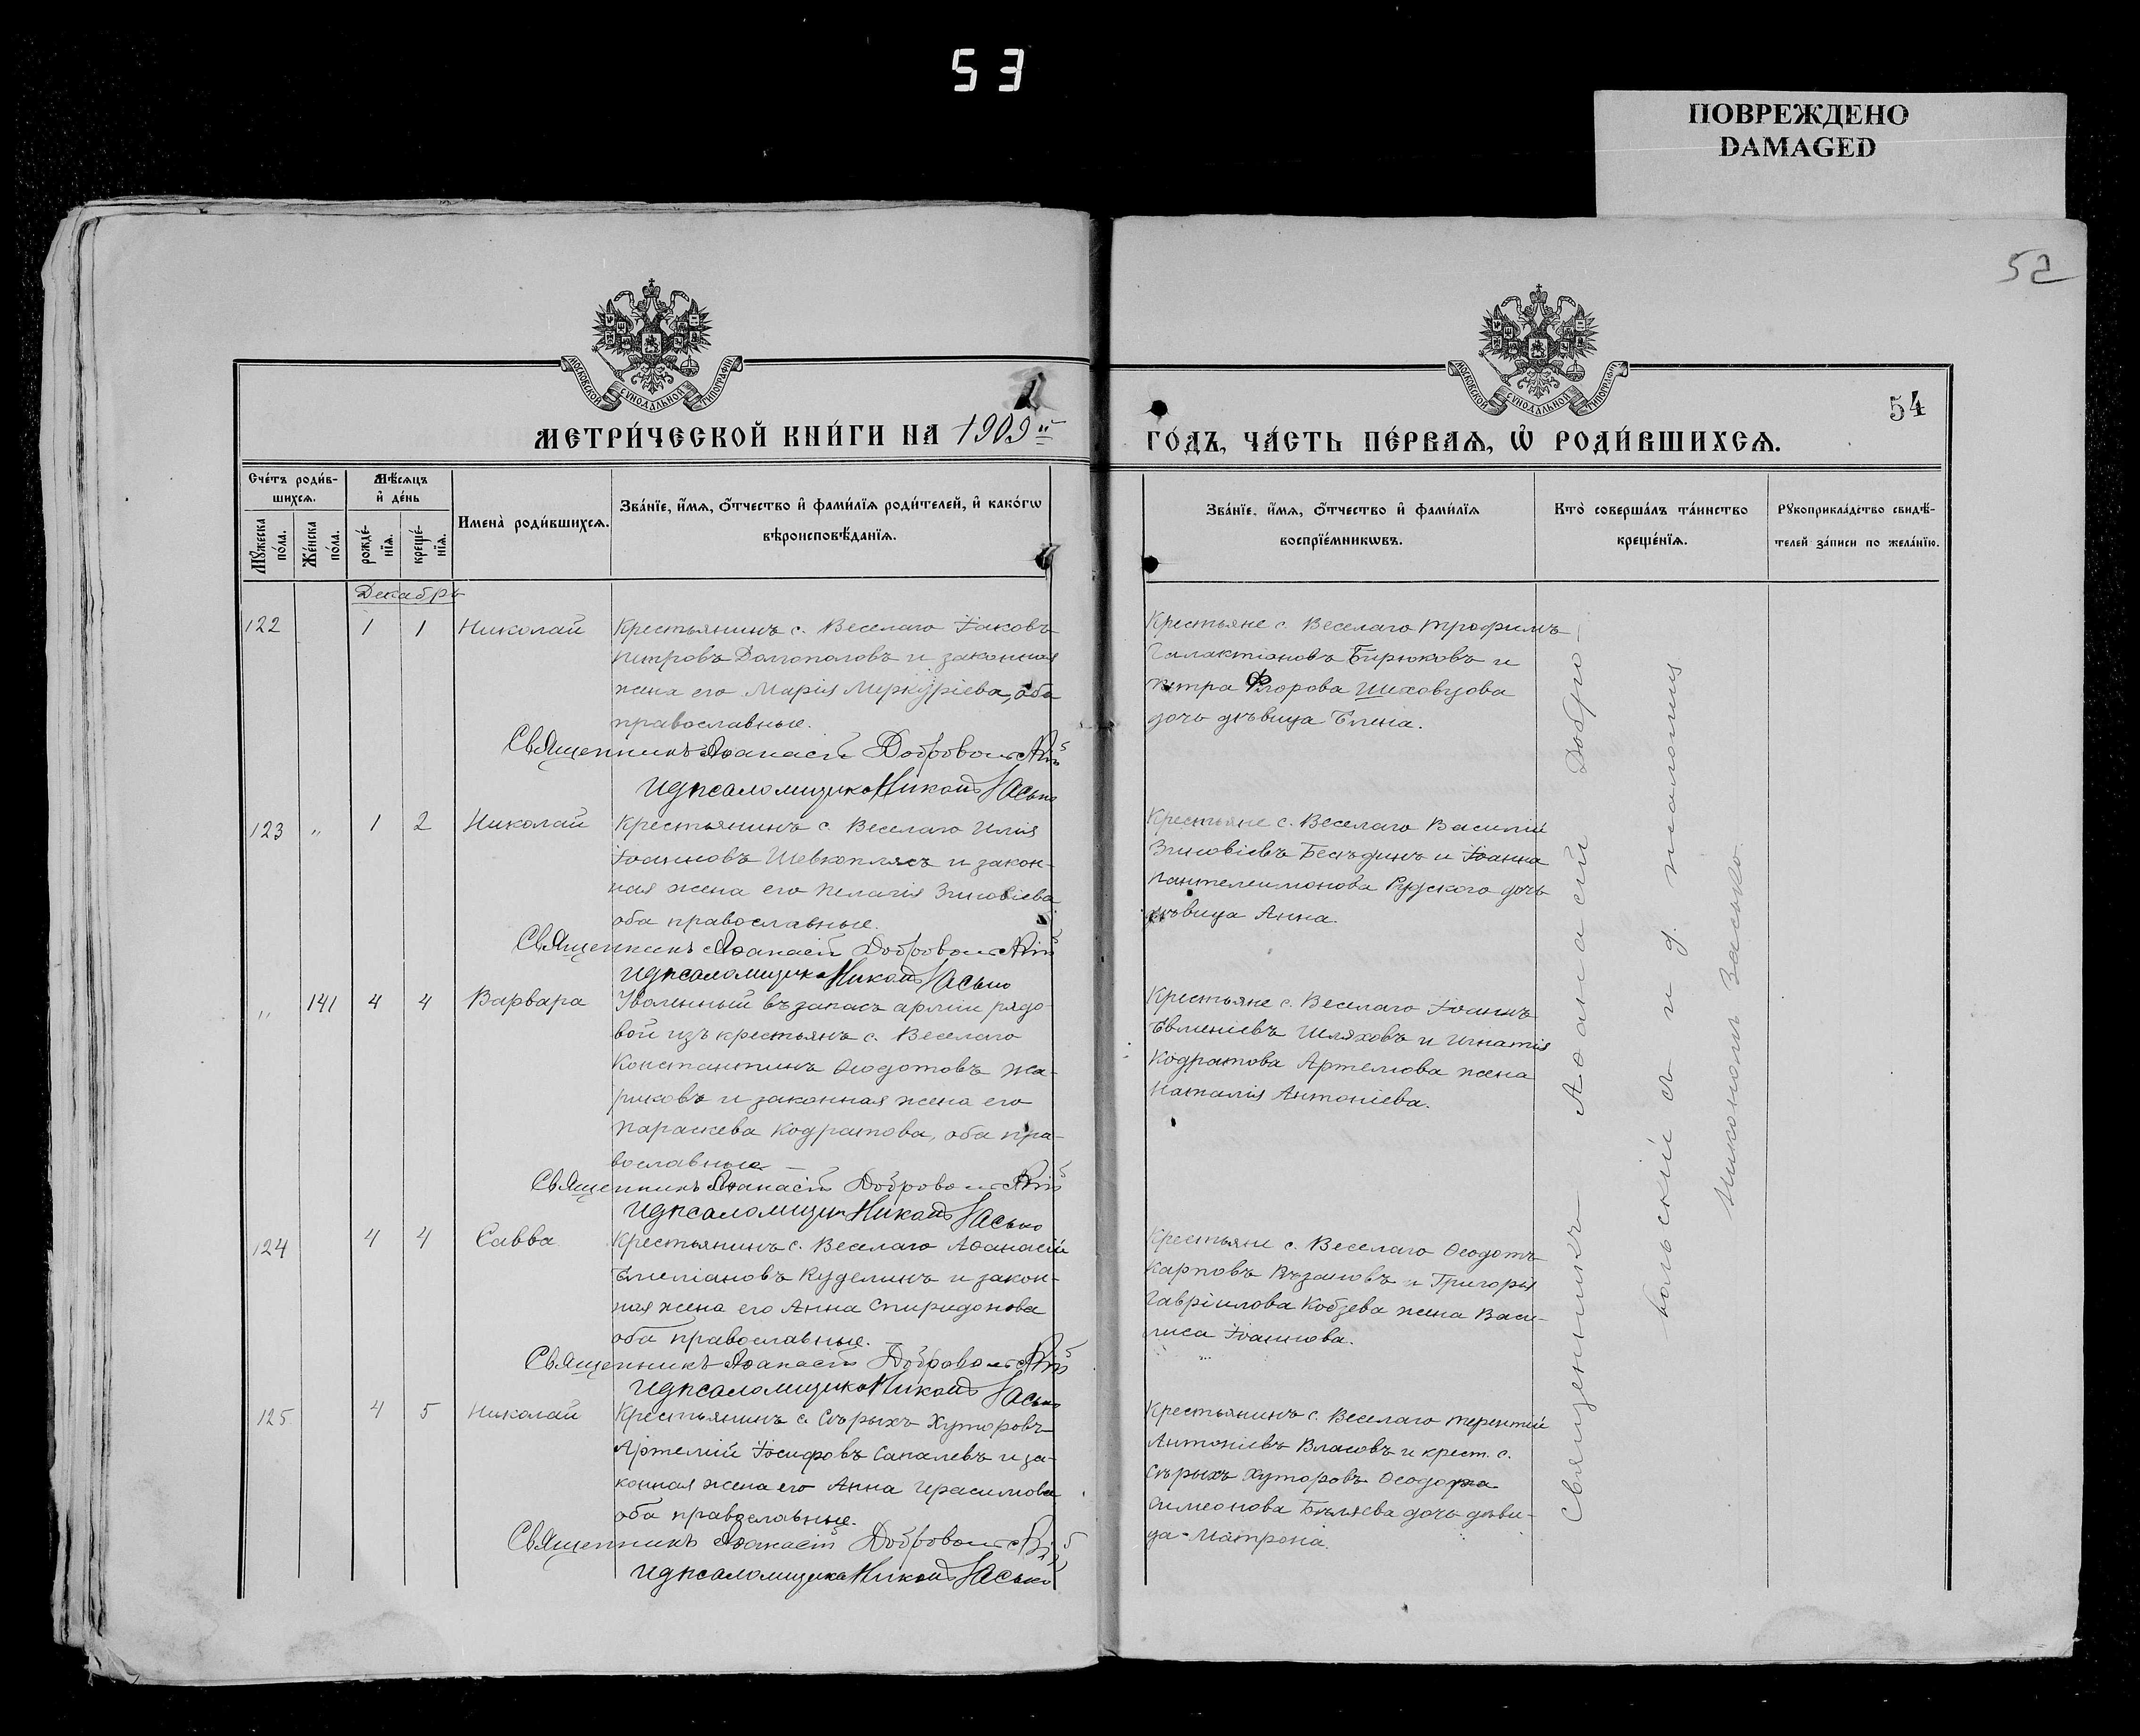 53
ПОВРЕЖДЕНО
DAMAGED
52
МОСКОВСКОЙ СѴНОДАЛЬНОЙ ТИПОГРАФІИ
МОСКОВСКОЙ СѴНОДАЛЬНОЙ ТИПОГРАФІИ
54
МЕТРИ́ЧЕСКОЙ КНИ́ГИ НА 1909й
ГО́ДЪ, ЧА́СТЬ ПЕ́РВАѦ, Ѡ҆ РОДИ́ВШИХСѦ.
Сче́тъ роди́в-
шихсѧ.
Мꙋ́жеска
по́ла.
Же́нска
по́ла.
Мѣ́сѧцъ
и҆ де́нь
рожде́-
нїѧ.
креще́-
нїѧ.
И҆мена̀ роди́вшихсѧ.
Зва́нїе, и҆́мѧ, ѻ҆́тчество и҆ фами́лїѧ роди́телей, и҆ како́гѡ
вѣроисповѣ́данїѧ.
Зва́нїе, и҆́мѧ, ѻ҆́тчество и҆ фами́лїѧ
воспрїе́мникѡвъ.
Кто̀ соверша́лъ та́инство
креще́нїѧ.
Рꙋкоприкла́дство свидѣ́-
телей за́писи по жела́нїю.
Декабрь
122 1 1 Николай
Крестьянинъ с. Веселаго Іаковъ
Петровъ Долгополовъ и законная
жена его Марія Меркуріева, оба
православные.
Священникъ Аѳанасій Добровольскій
И д псаломщика Никонъ Засько
Крестьяне с. Веселаго Трофимъ
Галактіоновъ Бирюковъ и
Петра Флорова Шеховцова
дочь дѣвица Елена.
123 " 1 2 Николай
Крестьянинъ с. Веселаго Илія
Іоанновъ Шевкоплясъ и закон-
ная жена его Пелагія Зиновіева
оба православные.
Священникъ Аѳанасій Добровольскій
И д псаломщика Никонъ Засько
Крестьяне с. Веселаго Василій
Зиновіевъ Бесѣдинъ и Іоанна
Пантелеимонова Рудского дочь
дѣвица Анна.
" 141 4 4 Варвара
Уволенный въ запасъ арміи рядо-
вой изъ крестьянъ с. Веселаго
Константинъ Ѳеодотовъ Жа-
риковъ и законная жена его
Параскева Кодратова, оба пра-
вославные
Священникъ Аѳанасій Добровольскій
И д псаломщика Никонъ Засько
Крестьяне с. Веселаго Іоаннъ
Евменіевъ Шляховъ и Игнатія
Кодратова Артемова жена
Наталія Антоніева.
124 4 4 Савва
Крестьянинъ с. Веселаго Аѳанасій
Емеліановъ Куделинъ и закон-
ная жена его Анна Спиридонова
оба православные.
Священникъ Аѳанасій Добровольскій
И д псаломщика Никонъ Засько
Крестьяне с. Веселаго Ѳеодотъ
Карповъ и Григорія
Гавріилова Кобзева жена Васи-
лиса Іоаннова.
125 4 5 Николай
Крестьянинъ с. Сѣрыхъ Хуторовъ
Артемій Іосифовъ Сапалевъ и за-
конная жена его Анна Герасимова
оба православные.
Священникъ Аѳанасій Добровольскій
И д псаломщика Никонъ Засько
Крестьянинъ с. Веселаго Терентій
Антоніевъ Власовъ и крест. с.
Сѣрыхъ Хуторовъ Ѳеодора
Симеонова Бѣляева дочь дѣви-
ца Матрона.
Священникъ Аѳанасій Добро-
вольскій съ и д. псаломщика
Никономъ Засько.